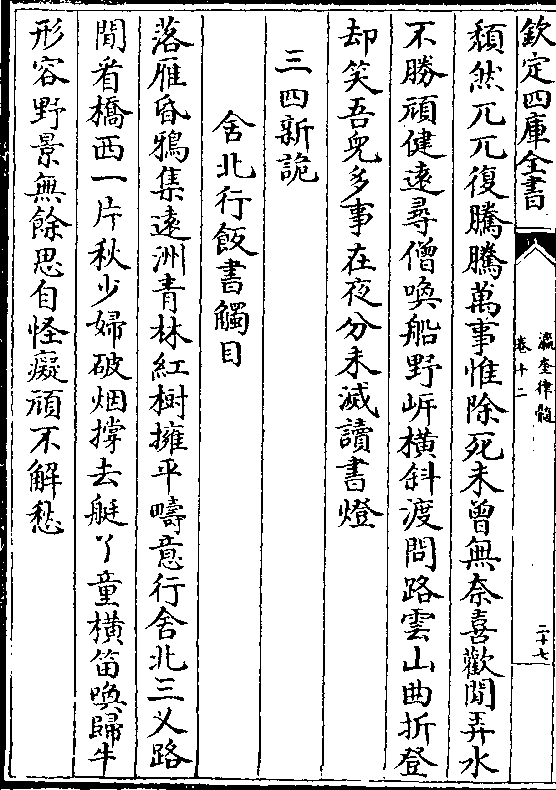 欽定四庫全書
瀛奎律髓
卷十二
二十七
頽然兀兀復騰騰萬事惟除死未曾無奈喜歡閒弄水
不勝頑健遠尋僧喚船野㟁横斜渡問路雲山曲折登
却笑吾兒多事在夜分未滅讀書燈
三四新詭
舍北行飯書觸目
落雁昏鴉集遠洲青林紅樹擁平疇意行舍北三义路
閒看橋西一片秋少婦破烟撐去艇丫童横笛喚歸牛
形容野景無餘思自怪癡頑不解愁